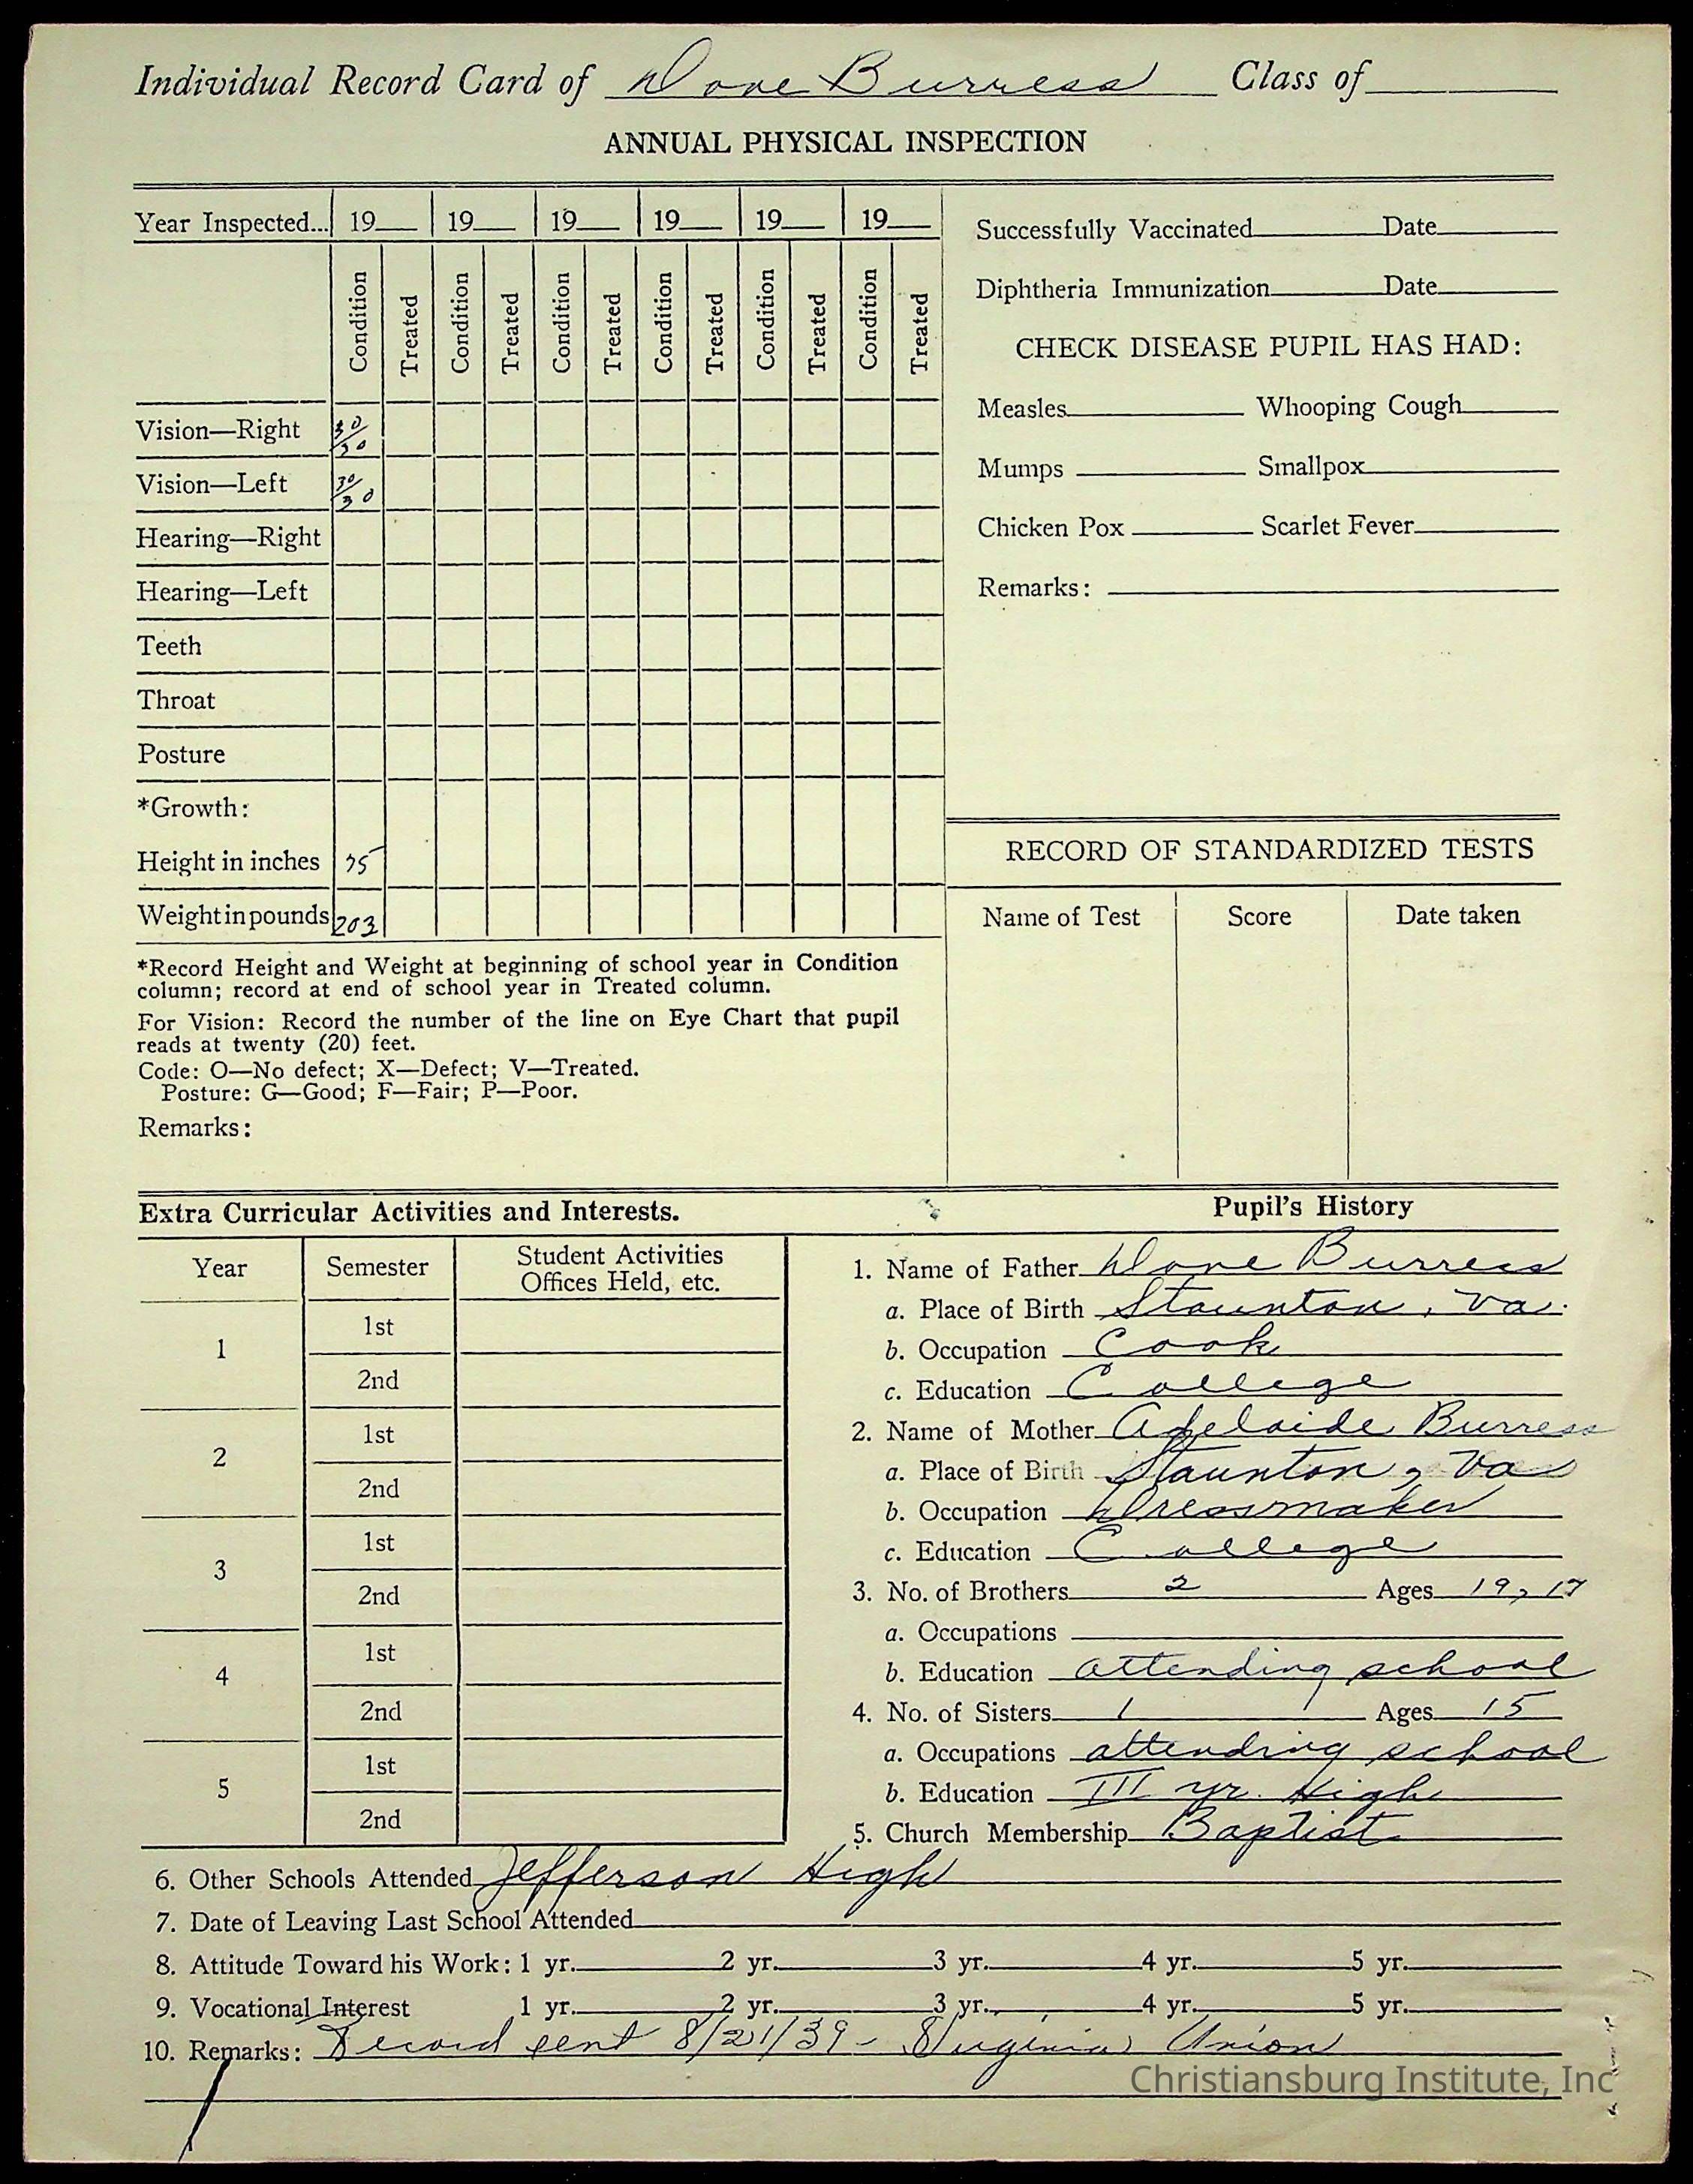 Individual Record Card of Dove Burress Class of
ANNUAL PHYSICAL INSPECTION
Year Inspected... 19 19 19 19 19 19
Condition Treated Condition Treated Condition Treated Condition Treated Condition Treated Condition Treated
Vision—Right 30/30
Vision—Left 30/30
Hearing—Right
Hearing—Left
Teeth
Throat
Posture
*Growth:
Height in inches 75
Weight in pounds 203
*Record Height and Weight at beginning of school year in Condition
column; record at end of school year in Treated column.
For Vision: Record the number of the line on Eye Chart that pupil
reads at twenty (20) feet.
Code: O—No defect; X—Defect; V—Treated.
Posture: G—Good; F—Fair; P—Poor.
Remarks:
Successfully Vaccinated Date
Diphtheria Immunization Date
CHECK DISEASE PUPIL HAS HAD:
Measles Whooping Cough
Mumps Smallpox
Chicken Pox Scarlet Fever
Remarks:
RECORD OF STANDARDIZED TESTS
Name of Test Score Date taken
Extra Curricular Activities and Interests.
Year Semester Student Activities
Offices Held, etc.
1 1st
2nd
2 1st
2nd
3 1st
2nd
4 1st
2nd
5 1st
2nd
Pupil's History
1. Name of Father Dove Burress
a. Place of Birth Staunton, Va.
b. Occupation Cook
c. Education College
2. Name of Mother Adelaide Burress
a. Place of Birth Staunton, Va
b. Occupation Dressmaker
c. Education College
3. No. of Brothers 2 Ages 19, 17
a. Occupations
b. Education attending school
4. No. of Sisters 1 Ages 15
a. Occupations attending school
b. Education III yr. High
5. Church Membership Baptist
6. Other Schools Attended Jefferson High
7. Date of Leaving Last School Attended
8. Attitude Toward his Work: 1 yr. 2 yr. 3 yr. 4 yr. 5 yr.
9. Vocational Interest 1 yr. 2 yr. 3 yr. 4 yr. 5 yr.
10. Remarks: Record sent 8/21/39 - Virginia Union
Christiansburg Institute, Inc